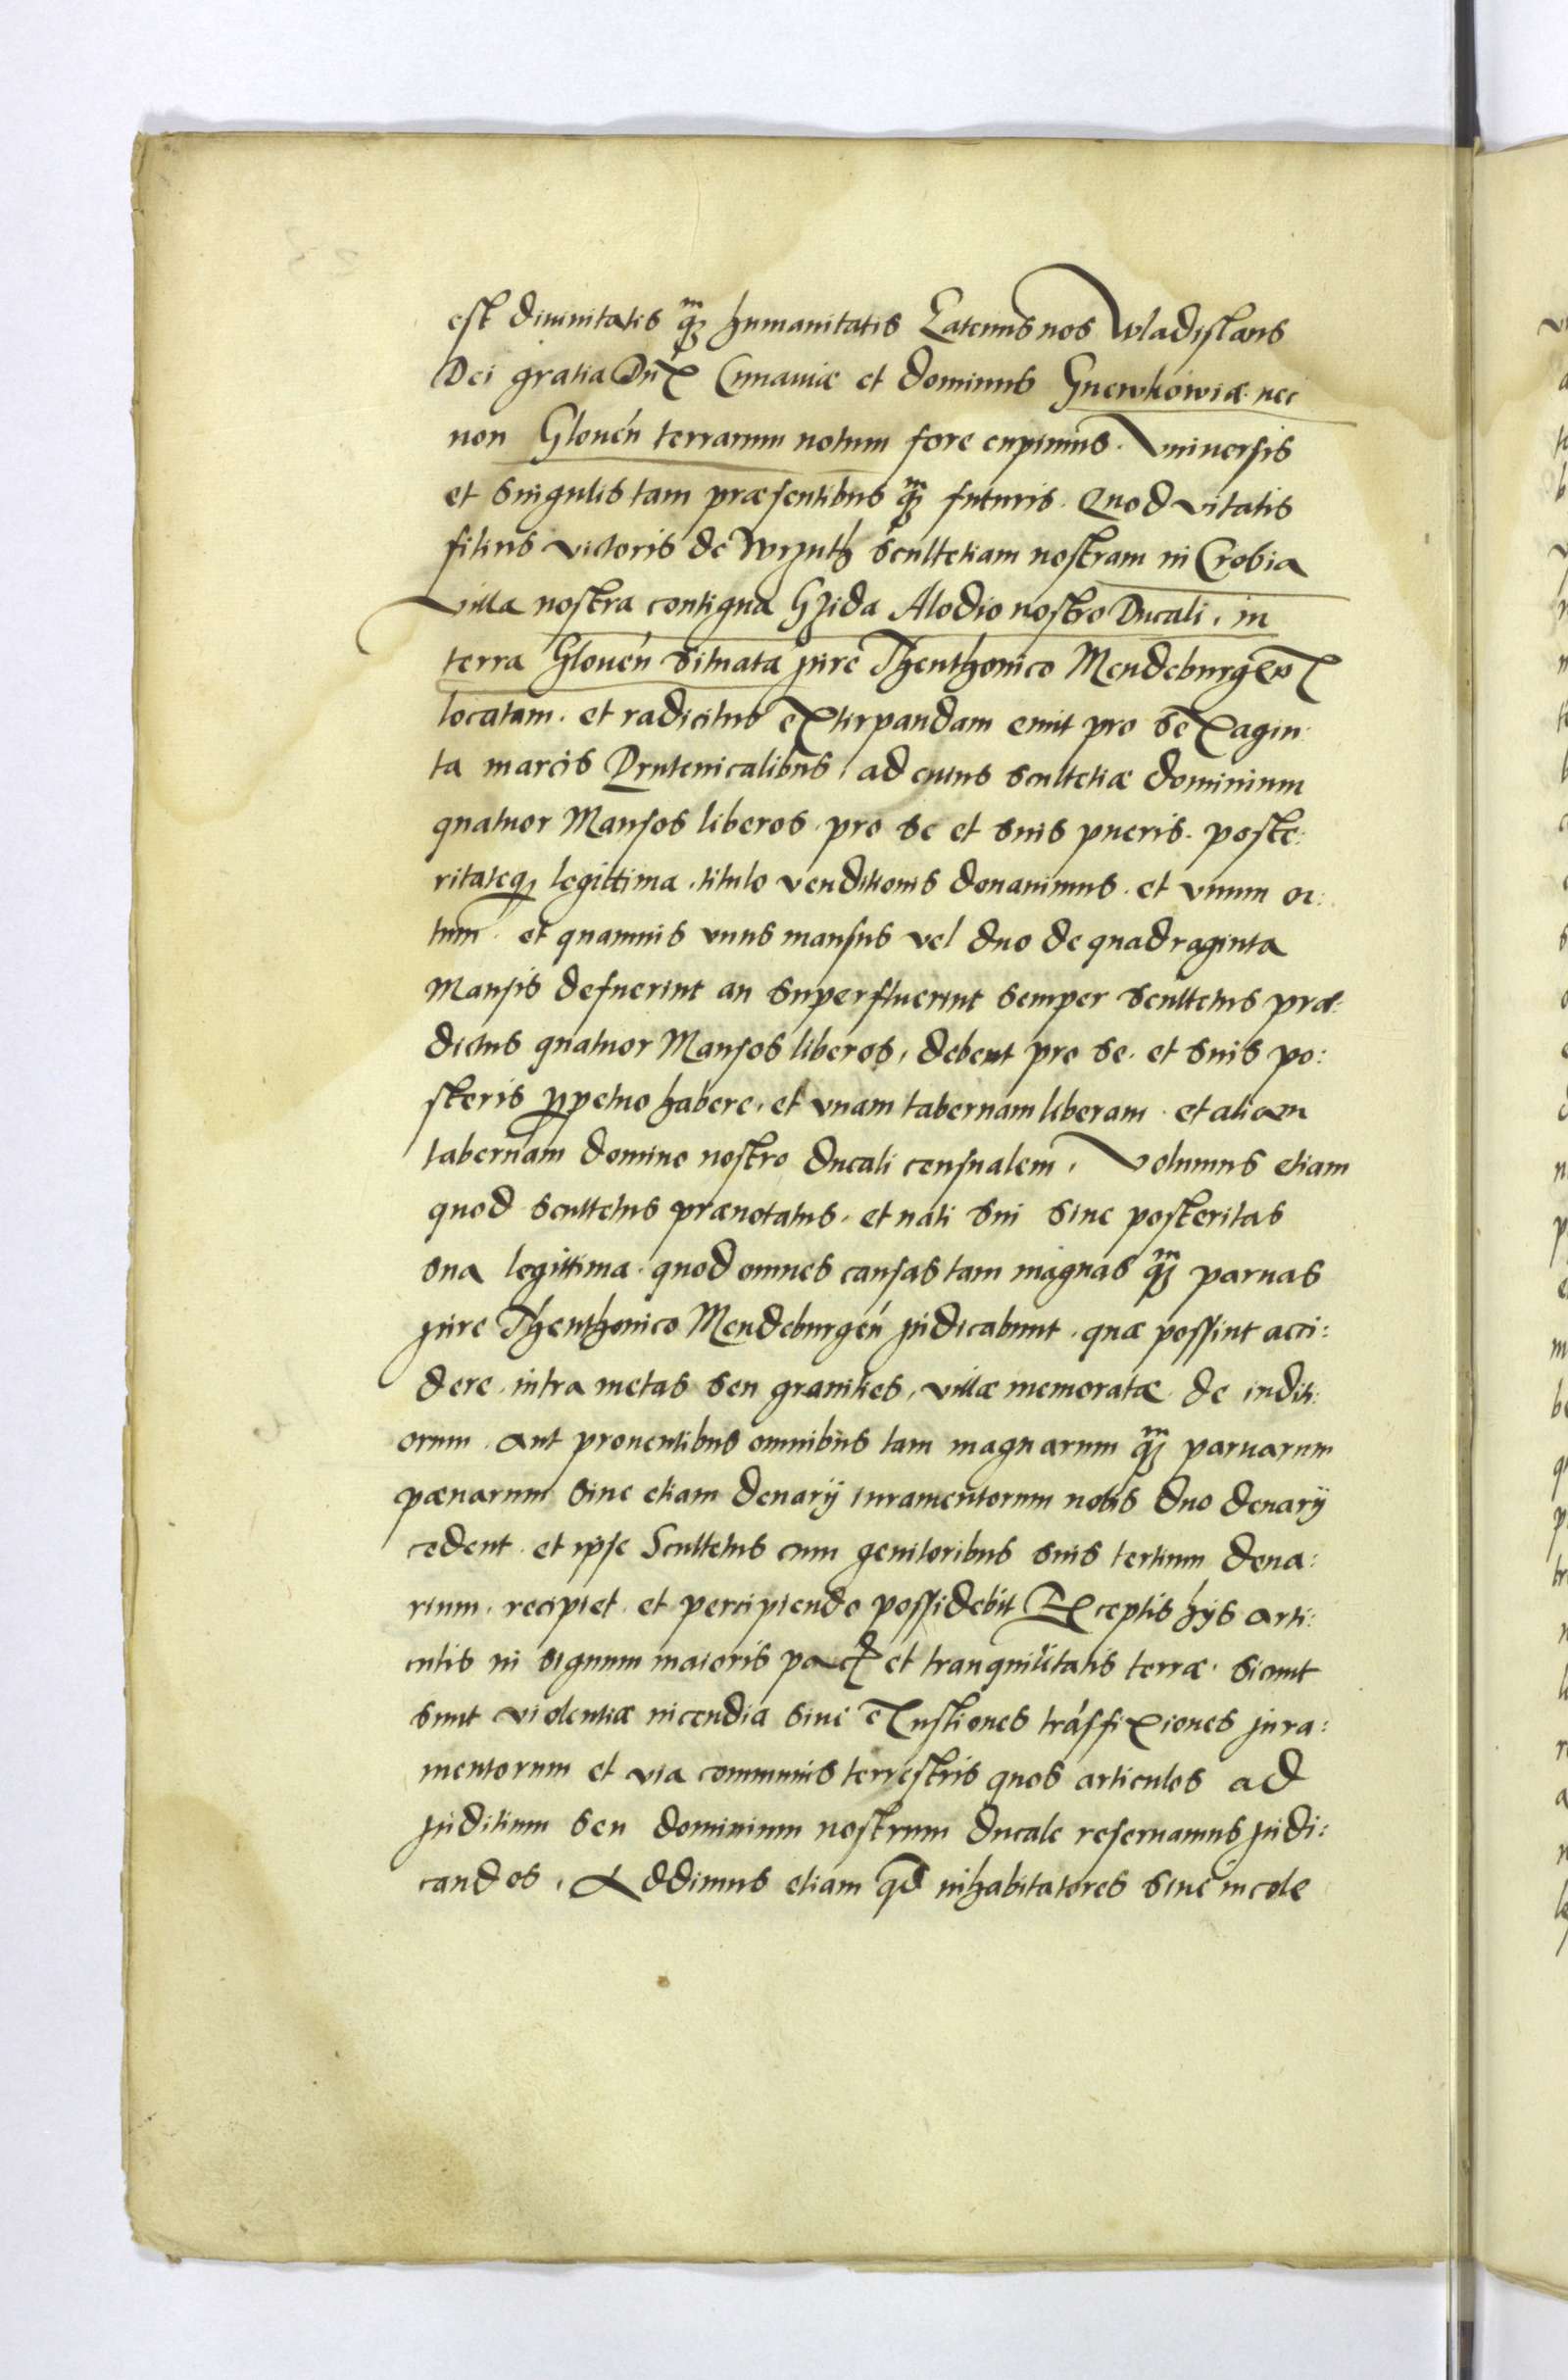 est diuinitatis qm̃ humanitatis Eatenus nos Wladislaus
Dei gratia Dux Cuiauiæ et dominus Gnewkowiæ nec
non Slonen̄ terrarum notum fore cupimus. Vniuersis
et singulis tam præsentibus qm̃ futuris. Quod vitalis
filius victoris de scultetiam nostram in Crobia
villa nostra contigua Alodio nostro Ducali, in
terra Slonen̄ situata jure Thenthonico
locatam. et radicitus extirpandam emit pro sexagin:
ta marcis Prutenicalibus, ad cuius scultetiæ dominium
quatuor Mansos liberos. pro se et suis pueris. poste:
ritateq; legittima. titulo venditionis donauimus. et vnum or:
tum. et quamuis vnus mansus vel duo de quadraginta
Mansis defuerint an superfluerint semper scultetus præ:
dictus quatuor Mansos liberos, debent pro se. et suis po:
steris ppetuo habere. et vnam tabernam liberam. et aliam
tabernam domino nostro ducali censualem, Volumus etiam
quod scultetus prænotatus. et nati sui siue posteritas
sua legittima. quod omnes causas tam magnas qm̃ paruas
jure Thenthonico Mendeburgen̄ judicabunt. quæ possint acci:
dere. intra metas seu granities, villæ memoratæ. de inditi:
orum. aut prouentibus omnibus tam magnarum qm̃ paruarum
pænarum siue etiam denarij iuramentorum nobis duo denarij
cedent. et ipse Scultetus cum genitoribus suis tertium dena:
rium. recipiet. et percipiendo possidebit Exceptis hijs arti:
culis in signum maioris et tranquilitatis terræ. sicuut
sunt violentiæ incendia siue exustiones trásfixiones jura:
mentorum et via communis terrestris quos articulos ad
juditium seu dominium nostrum ducale reseruamus judi:
candos, Addimus etiam qd inhabitatores siue incole